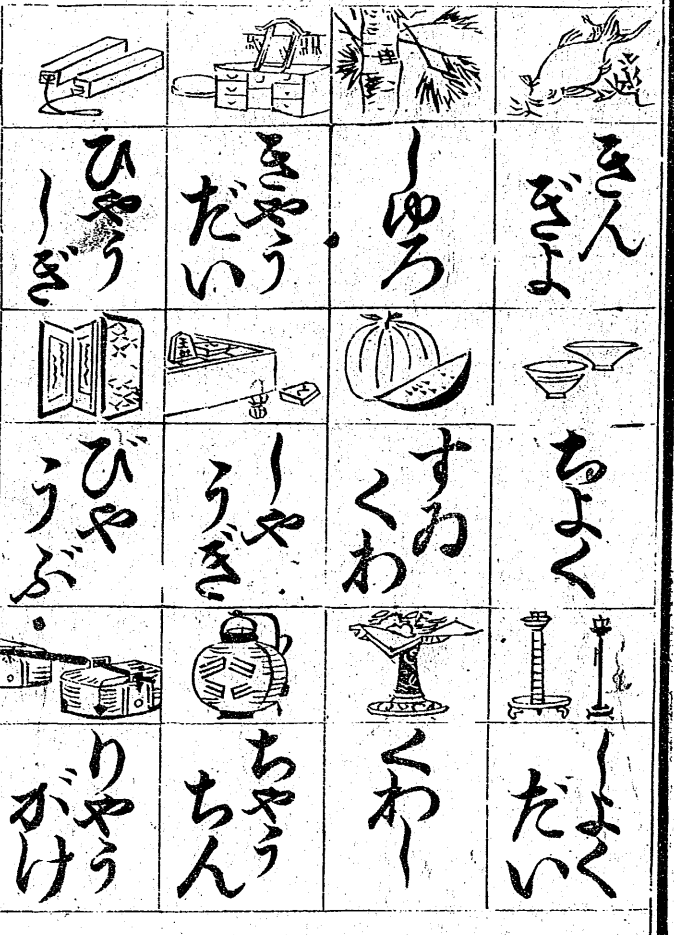 きん
ぎよ
しゆろ
きやう
だい
ひやう
しぎ
ちよく
すゐ
くわ
しや
うぎ
びや
うぶ
しよく
だい
くわし
ちやう
ちん
りやう
がけ